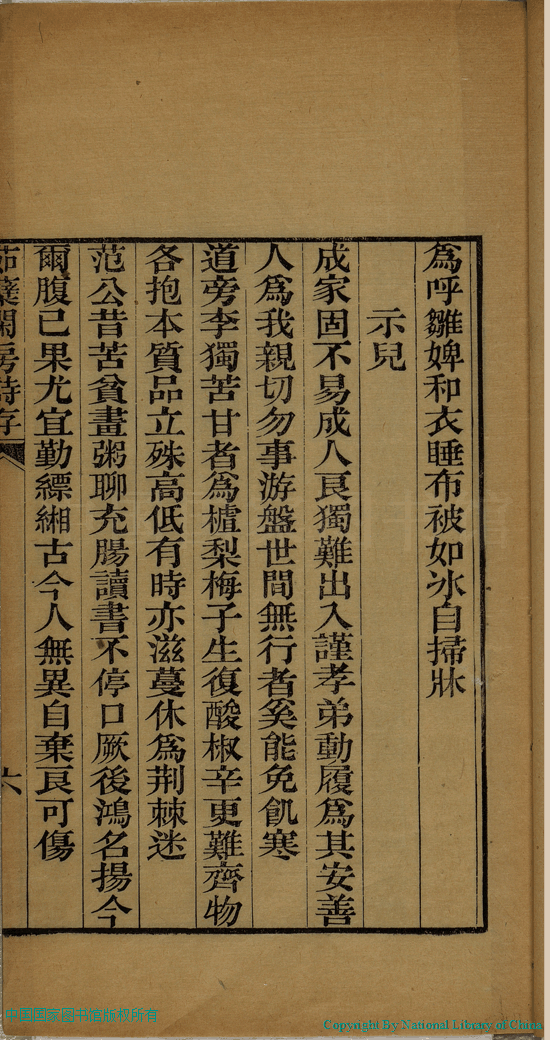 為呼雛婢和衣睡布被如冰自掃牀
示兒
成家固不易成人良獨難出入謹孝弟動履為其安善
人為我親切勿事游盤世間無行者奚能免飢寒
道旁李獨苦甘者為樝梨梅子生復酸椒辛更難齊物
各抱本質品立殊高低有時亦滋蔓休為荆棘迷
范公昔苦貧畫粥聊充腸讀書不停口厥後鴻名揚今
爾腹已果尤宜勤縹緗古今人無異自棄良可傷
茹蘗閑房詩存
六
中国国家图书馆版权所有
Copyright By National Library of China